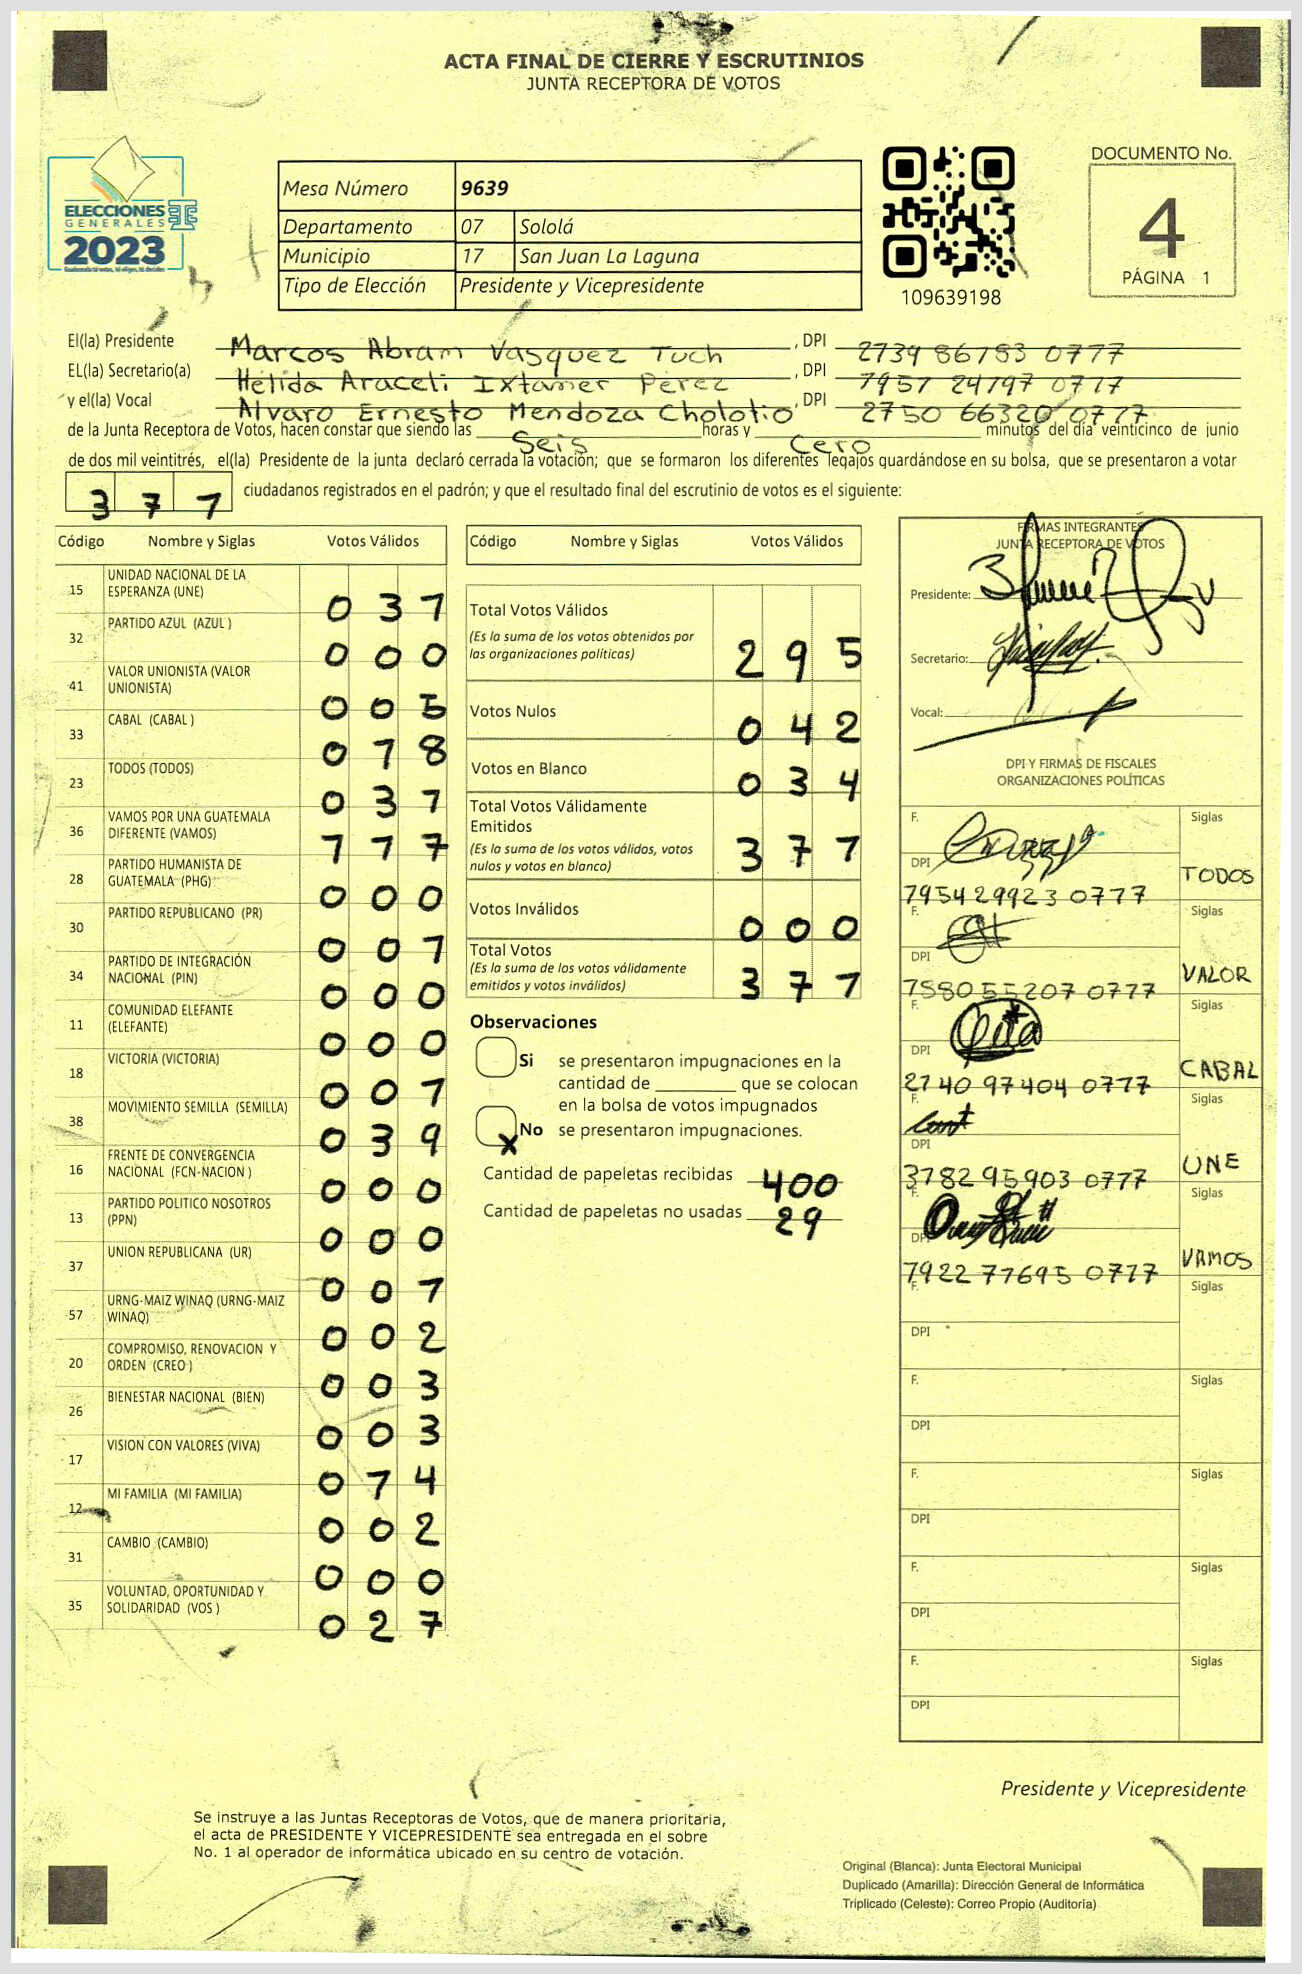 ACTA FINAL DE CIERRE Y ESCRUTINIOS
JUNTA RECEPTORA DE VOTOS
ELECCIONES
GENERALES
2023
Mesa Número 9639
Departamento 07 Sololá
Municipio 17 San Juan La Laguna
Tipo de Elección Presidente y Vicepresidente
109639198
DOCUMENTO No.
4
PÁGINA 1
El(la) Presidente Marcos Abram Vasquez Tuch, DPI 2739 86183 0717
EL(la) Secretario(a) Hélida Araceli Ixtamer Pérez, DPI 1951 24197 0717
y el(la) Vocal Alvaro Ernesto Mendoza Cholotio, DPI 2750 66320 0717
de la Junta Receptora de Votos, hacen constar que siendo las Seis horas y Cero minutos del día veinticinco de junio
de dos mil veintitrés, el(la) Presidente de la junta declaró cerrada la votación; que se formaron los diferentes legajos guardándose en su bolsa, que se presentaron a votar
3 7 1 ciudadanos registrados en el padrón; y que el resultado final del escrutinio de votos es el siguiente:
Código Nombre y Siglas Votos Válidos
15 UNIDAD NACIONAL DE LA ESPERANZA (UNE) 0 3 1
32 PARTIDO AZUL (AZUL ) 0 0 0
41 VALOR UNIONISTA (VALOR UNIONISTA) 0 0 5
33 CABAL (CABAL ) 0 1 8
23 TODOS (TODOS) 0 3 1
36 VAMOS POR UNA GUATEMALA DIFERENTE (VAMOS) 1 1 7
28 PARTIDO HUMANISTA DE GUATEMALA (PHG) 0 0 0
30 PARTIDO REPUBLICANO (PR) 0 0 1
34 PARTIDO DE INTEGRACIÓN NACIONAL (PIN) 0 0 0
11 COMUNIDAD ELEFANTE (ELEFANTE) 0 0 0
18 VICTORIA (VICTORIA) 0 0 1
38 MOVIMIENTO SEMILLA (SEMILLA) 0 3 9
16 FRENTE DE CONVERGENCIA NACIONAL (FCN-NACION ) 0 0 0
13 PARTIDO POLITICO NOSOTROS (PPN) 0 0 0
37 UNION REPUBLICANA (UR) 0 0 1
57 URNG-MAIZ WINAQ (URNG-MAIZ WINAQ) 0 0 2
20 COMPROMISO, RENOVACION Y ORDEN (CREO ) 0 0 3
26 BIENESTAR NACIONAL (BIEN) 0 0 3
17 VISION CON VALORES (VIVA) 0 1 4
12 MI FAMILIA (MI FAMILIA) 0 0 2
31 CAMBIO (CAMBIO) 0 0 0
35 VOLUNTAD, OPORTUNIDAD Y SOLIDARIDAD (VOS ) 0 2 7
Código Nombre y Siglas Votos Válidos
Total Votos Válidos
(Es la suma de los votos obtenidos por
las organizaciones políticas) 2 9 5
Votos Nulos 0 4 2
Votos en Blanco 0 3 4
Total Votos Válidamente
Emitidos
(Es la suma de los votos válidos, votos
nulos y votos en blanco) 3 7 1
Votos Inválidos 0 0 0
Total Votos
(Es la suma de los votos válidamente
emitidos y votos inválidos) 3 7 1
Observaciones
Si se presentaron impugnaciones en la
cantidad de ________ que se colocan
en la bolsa de votos impugnados
X No se presentaron impugnaciones.
Cantidad de papeletas recibidas 400
Cantidad de papeletas no usadas 29
FIRMAS INTEGRANTES
JUNTA RECEPTORA DE VOTOS
Presidente:
Secretario:
Vocal:
DPI Y FIRMAS DE FISCALES
ORGANIZACIONES POLÍTICAS
F. Siglas
DPI TODOS
1954 29923 0717
F. Siglas
DPI VALOR
1580 55207 0717
F. Siglas
DPI CABAL
2740 97404 0717
F. Siglas
DPI UNE
3182 95903 0717
F. Siglas
DPI VAMOS
1922 77695 0717
F. Siglas
DPI
F. Siglas
DPI
F. Siglas
DPI
F. Siglas
DPI
F. Siglas
DPI
Presidente y Vicepresidente
Se instruye a las Juntas Receptoras de Votos, que de manera prioritaria,
el acta de PRESIDENTE Y VICEPRESIDENTE sea entregada en el sobre
No. 1 al operador de informática ubicado en su centro de votación.
Original (Blanca): Junta Electoral Municipal
Duplicado (Amarilla): Dirección General de Informática
Triplicado (Celeste): Correo Propio (Auditoría)